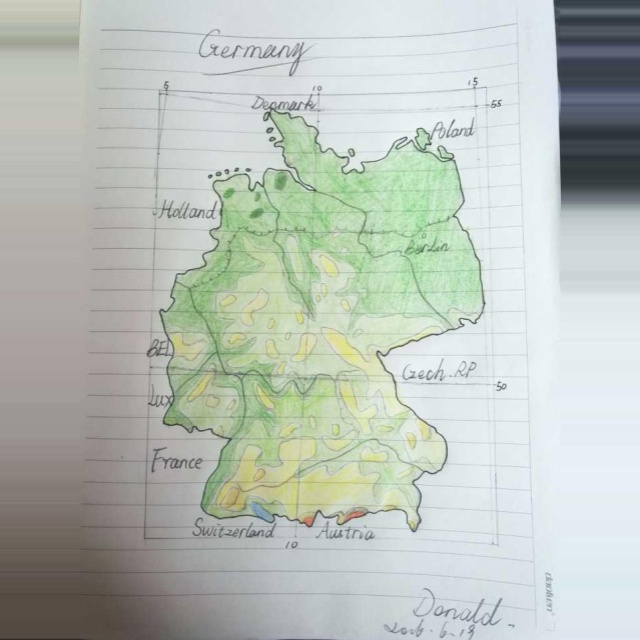 Germany
5 10 15
Denmark 55
Poland
Holland
Berlin
BEL
Czech.RP
50
Lux
France
Switzerland Austria
10
Donald.